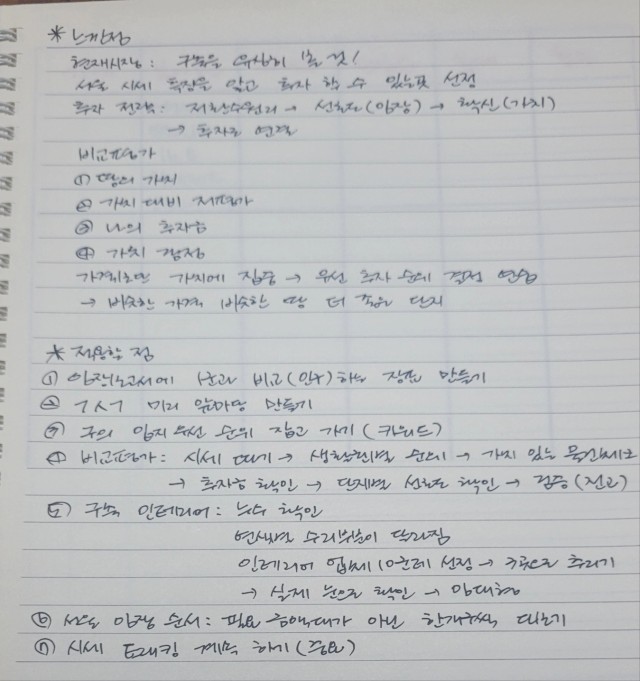 * 느낀점
현재시장 : 구축을 유심히 볼 것!
서울 시세 특징을 알고 투자 할 수 있는곳 선정
투자 전략 : 저환수원리 → 선호도(입장) → 확신(가치)
→ 투자로 연결
비교평가
① 땅의 가치
② 가치 대비 저평가
③ 나의 투자금
④ 가치 감정
가격보단 가치에 집중 → 우선 투자 순위 결정 연습
→ 비슷한 가격 비슷한 땅 더 좋은 단지
* 적용할 점
① 임장보고서에 비교(인구)하는 장표 만들기
② ㄱㅅㄱ 미리 앞마당 만들기
③ 구의 입지 우선 순위 잡고 가기 (키워드)
④ 비교평가 : 시세 따기 → 생활권별 순위 → 가치 있는 물건체크
→ 투자금 확인 → 단지별 선호도 확인 → 검증(전고)
⑤ 구축 인테리어 : 누수 확인
연식별 수리부분이 달라짐
인테리어 업체 10군데 선정 → 3곳으로 추리기
→ 실제 눈으로 확인 →
⑥ 서울 임장 순서 : 필요 금액대가 아닌 한개구씩 다보기
⑦ 시세 트래킹 계속 하기 (중요)